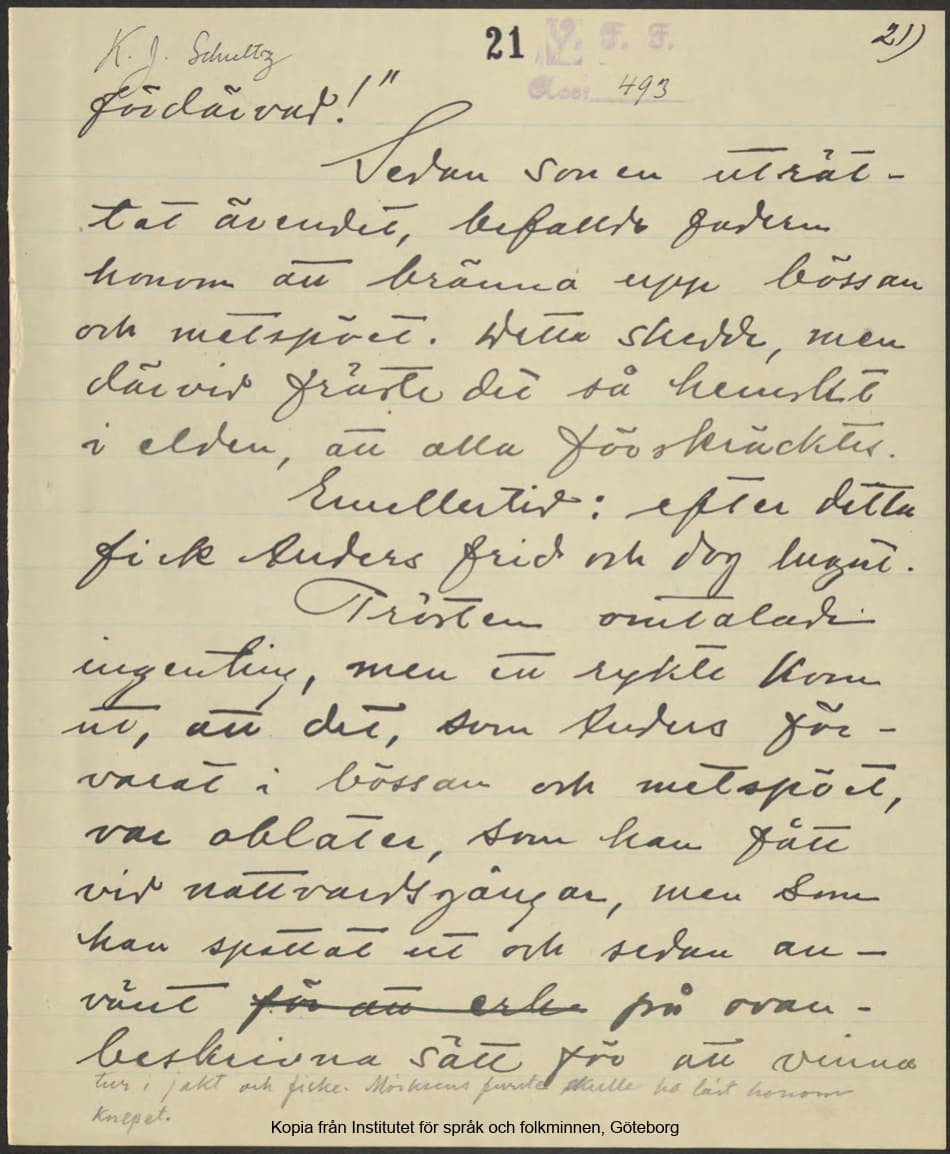 K. J. Schultz
21
V. F. F.
21)
Acc: 493
fördärvad!"
Sedan sonen uträt-
tat ärendet, befallde fadern
honom att bränna upp bössan
och metspöet. Detta skedde, men
därvid fräste det så hemskt
i elden, att alla förskräcktes.
Emellertid: efter detta
fick Anders frid och dog lugnt.
Prästen omtalade
ingenting, men ett rykte kom
ut, att det, som Anders för-
varat i bössan och metspöet,
var oblater, som han fått
vid nattvardsgångar, men som
han spottat ut och sedan an-
vänt för att erh på ovan-
beskrivna sätt för att vinna
tur i jakt och fiske. Mörksens furste skulle ha lärt honom
knepet.
Kopia från Institutet för språk och folkminnen, Göteborg